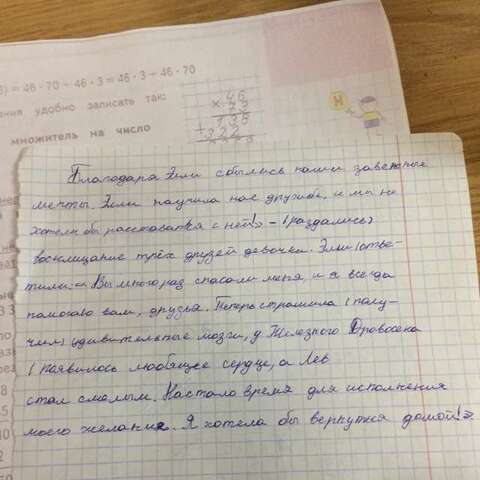 3) = 46 · 70 − 46 · 3 = 46 · 3 − 46 · 70
удобно записать так:
множитель на число
46
× 73
138
+ 322
Н
Благодаря Элли сбылись наши заветные
мечты. Элли научила нас дружбе, и мы не
хотели бы расставатся с ней!» – (раздались)
восклицание трёх друзей девочки. Элли (отве-
тила: « Вы много раз спасали меня, и я всегда
помогаю вам, друзья. Теперь страшила (полу-
чил) удивительные мозги, у Железного Дровосека
(появилось любящее сердце, а Лев
стал смелым. Настало время для исполнения
моего желание. Я хотела бы вернутся домой!».